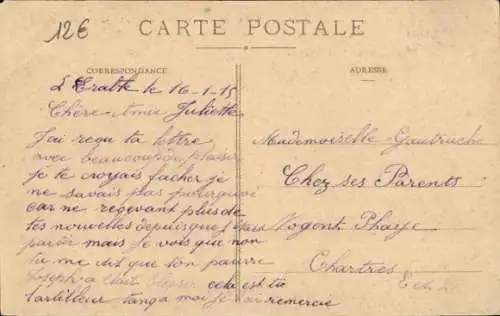 12€
CARTE POSTALE
CORRESPONDANCE
ADRESSE
le 16-1-15
Chère Amie Juliette
J'ai reçu ta lettre
avec beaucoup de plaisir
je te croyais facher je
ne savais pas pourquoi
car ne recevant plus de
tes nouvelles depuis que
partir mais je vois que non
tu me dit que ton pauvre
Joseph a blesser cela est ta
tartilleur moi je remercie
Mademoiselle Gautruche
Chez ses Parents
Nogent Phaye
Chartres E et L